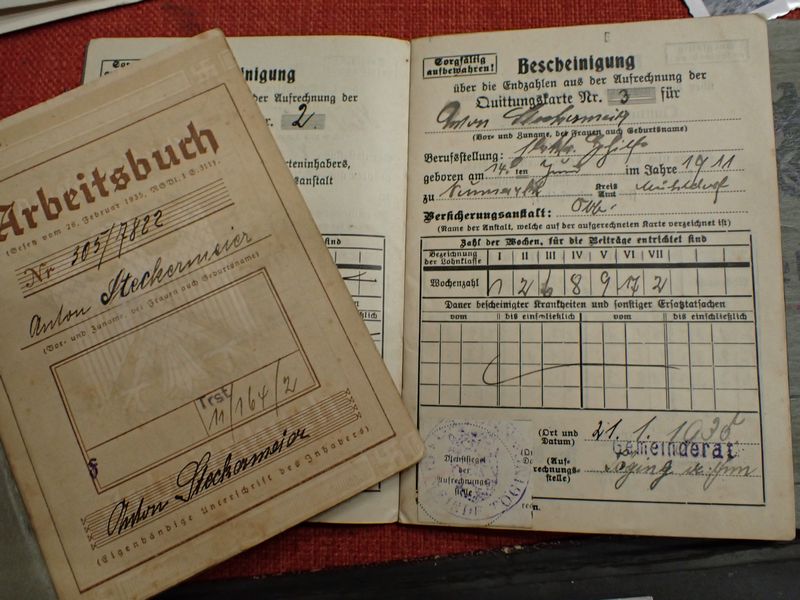 Arbeitsbuch
(Gesetz vom 26. Februar 1935, RGBl. I S. 311).
Nr 305/7822
Anton Steckermeier
(Vor- und Zuname, bei Frauen auch Geburtsname)
Trst
11/164/2
Anton Steckermeier
(Eigenhändige Unterschrift des Inhabers)
nigung
der Aufrechnung der
r. 2
rteninhabers,
sanstalt
ind
ßlich
Sorgfältig
aufbewahren!
Bescheinigung
über die Endzahlen aus der Aufrechnung der
Quittungskarte Nr. 3 für
Anton Steckermeier
(Vor- und Zuname, bei Frauen auch Geburtsname)
Berufsstellung:
geboren am 14 ten Juni im Jahre 1911
zu Neumarkt Kreis Amt Mühldorf
Versicherungsanstalt: Obb.
(Name der Anstalt, welche auf der aufgerechneten Karte verzeichnet ist)
Zahl der Wochen, für die Beiträge entrichtet sind
Bezeichnung der Lohnklasse I II III IV V VI VII
Wochenzahl
Dauer bescheinigter Krankheiten und sonstiger Ersatztatsachen
vom bis einschließlich vom bis einschließlich
(Ort und Datum) 21. 1. 1935
Gemeinderat
(Aufrechnungsstelle) Töging a. Inn
Dienstsiegel
der
Aufrechnungs
stelle